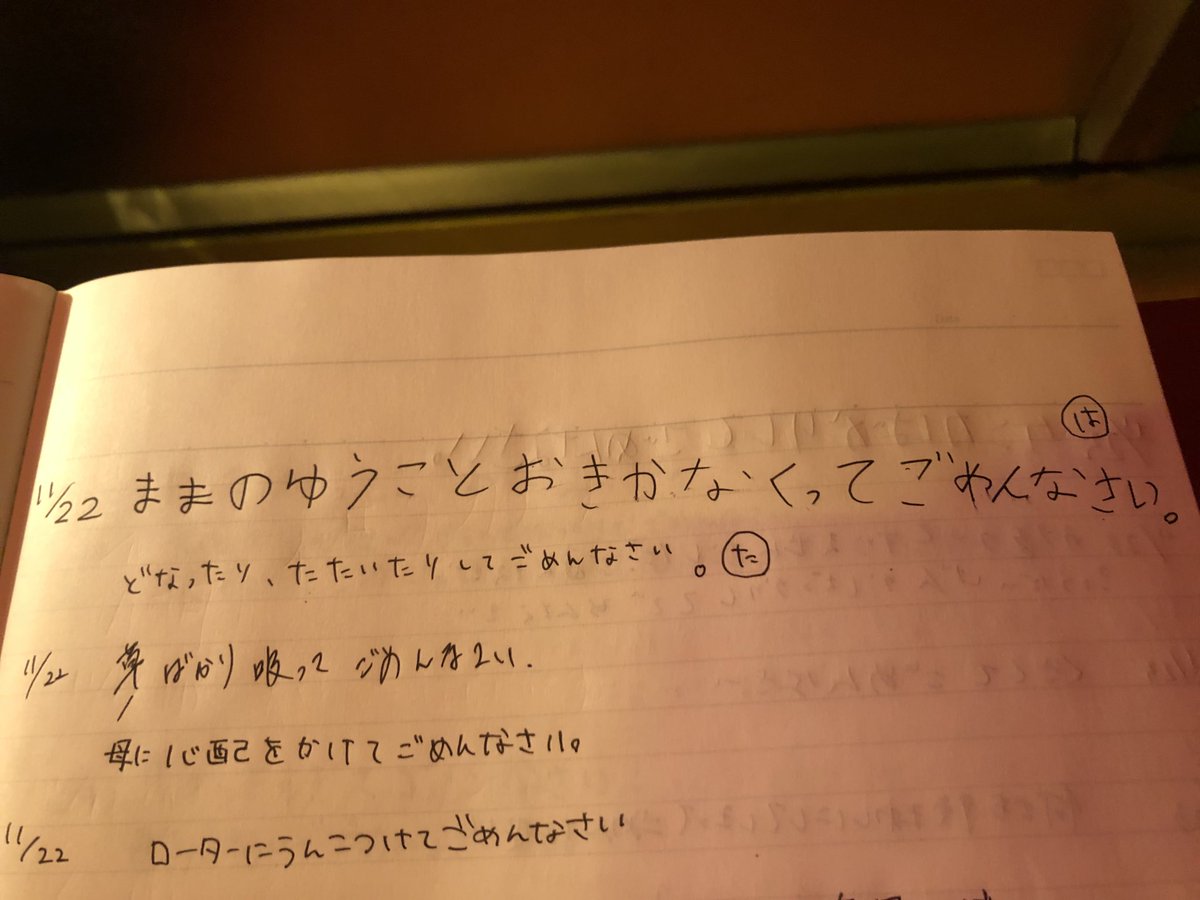 は
11/22 ままのゆうことおきかなくってごめんなさい。
どなったり、たたいたりしてごめんなさい。た
11/22 草ばかり吸ってごめんなさい.
母に心配をかけてごめんなさい。
11/22 ローターにうんこつけてごめんなさい